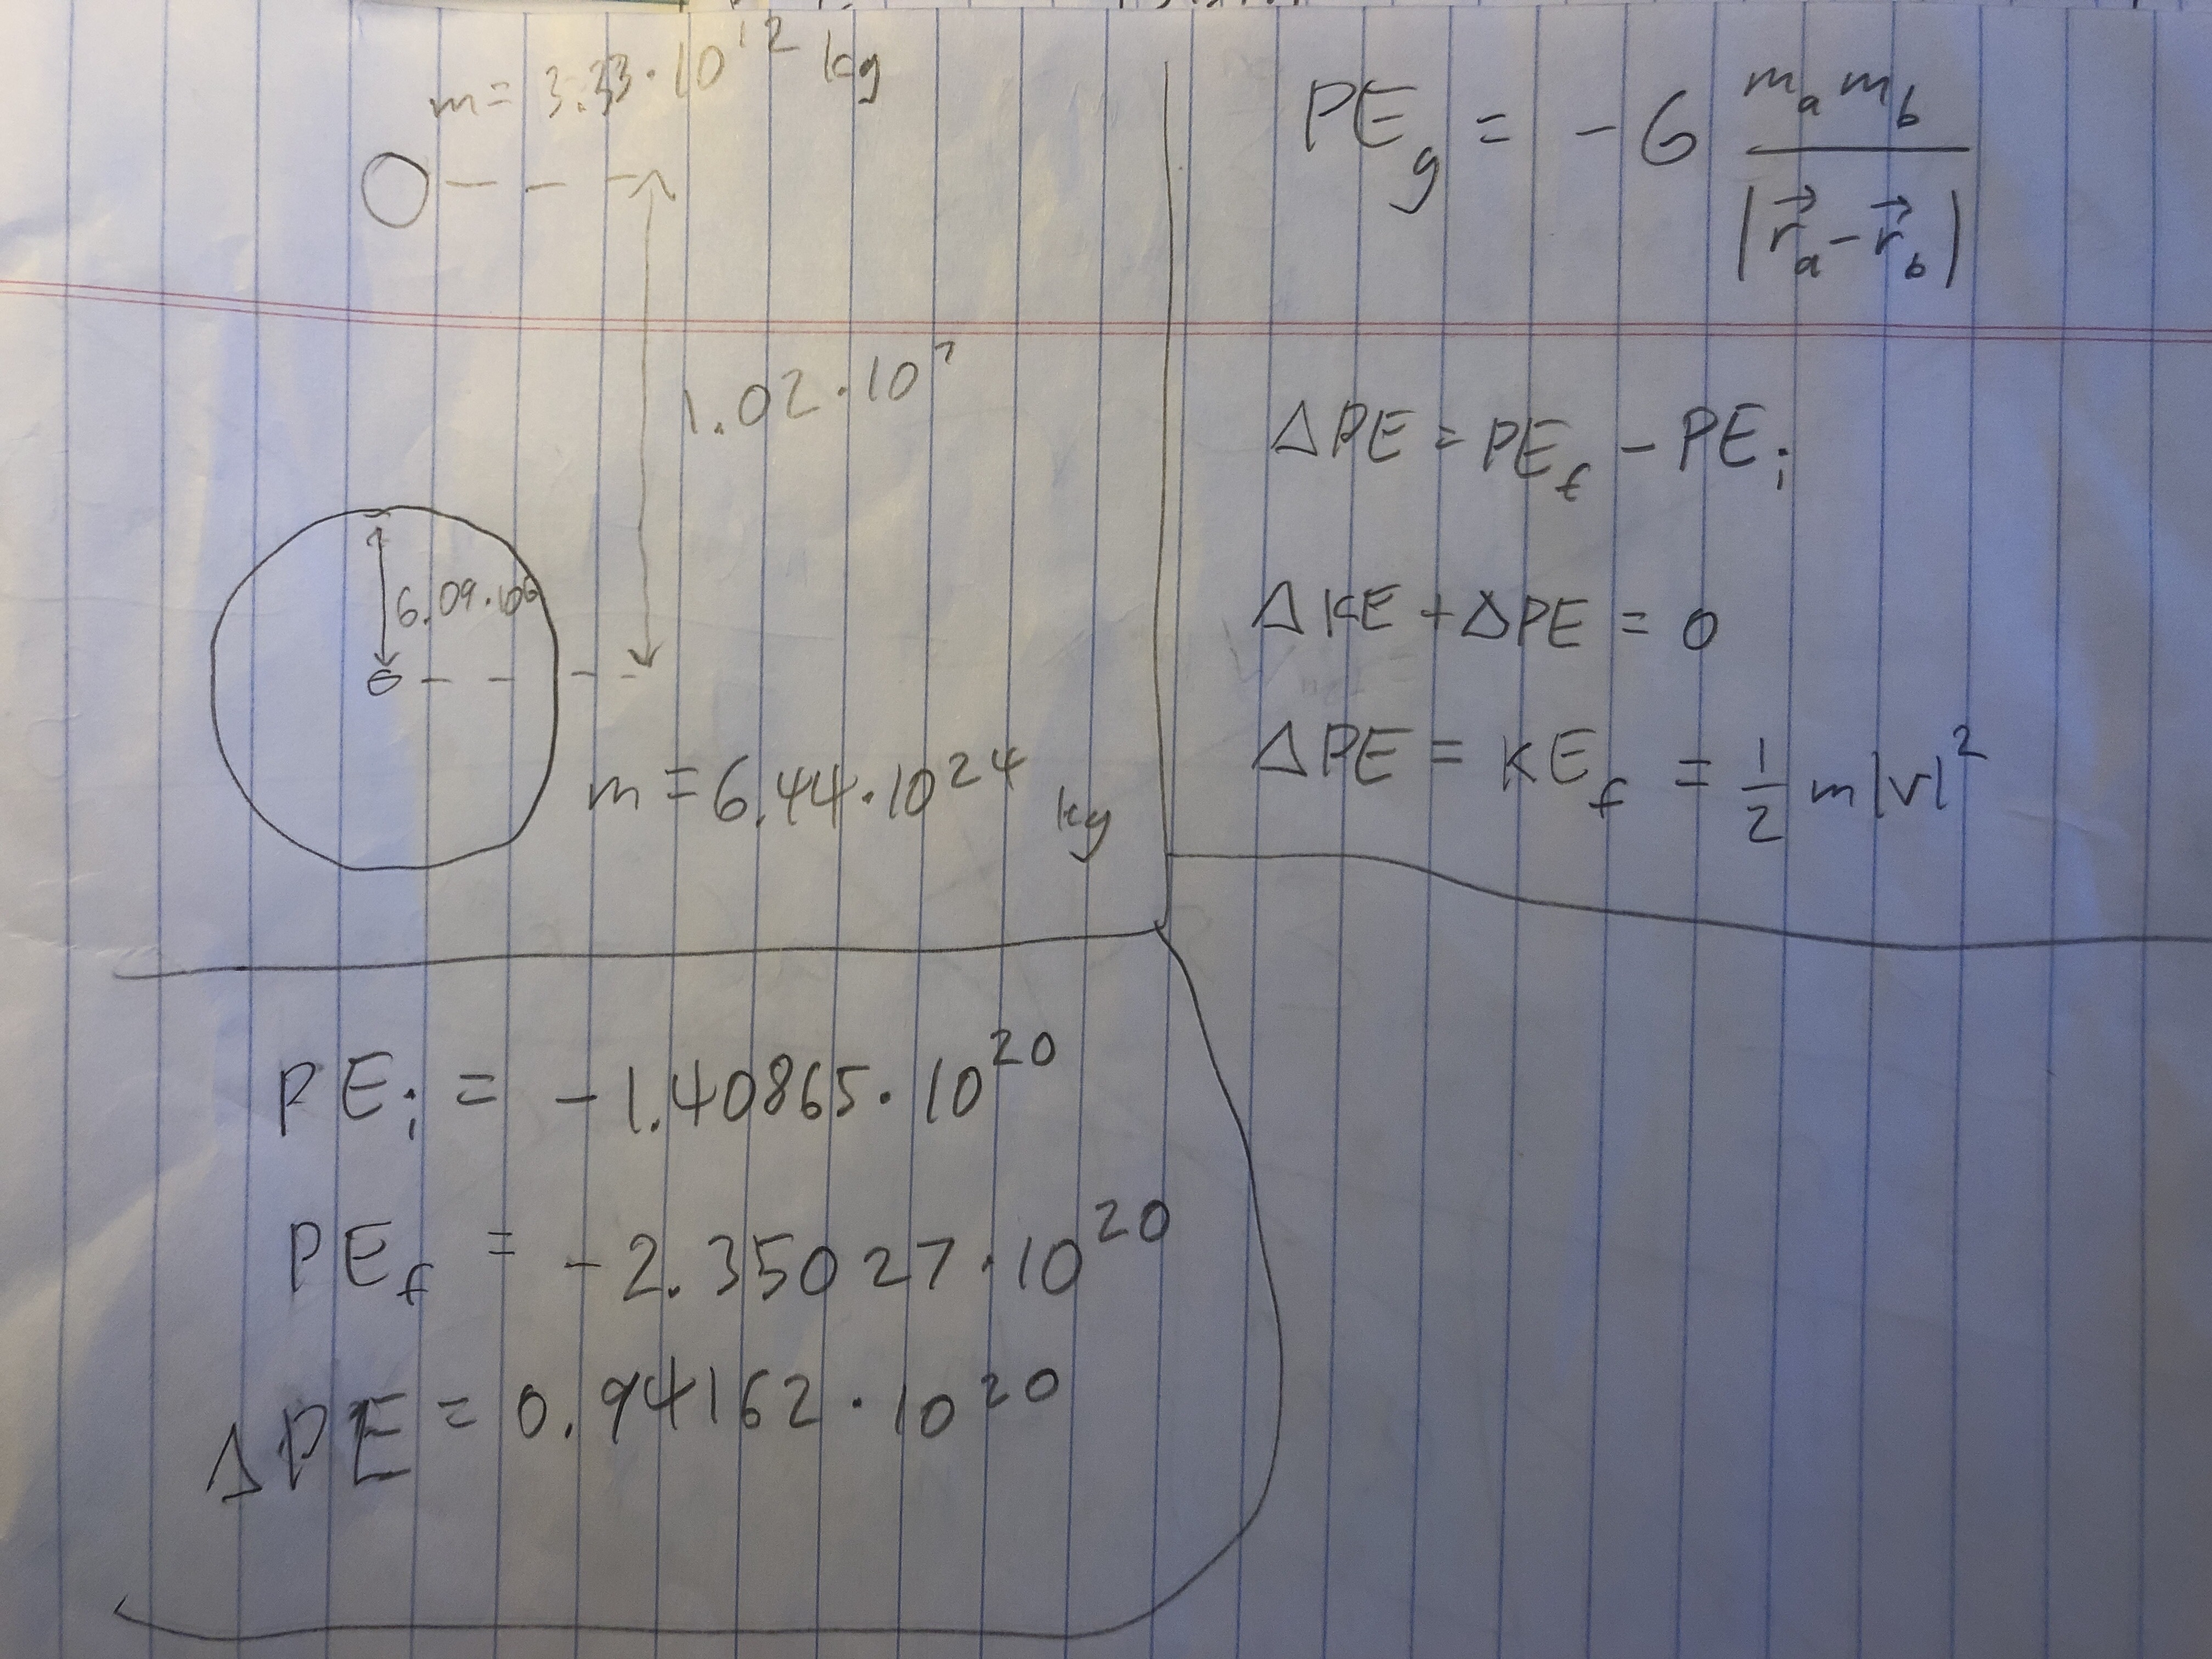 m = 3.33 · 10^12 kg
1.02 · 10^7
6.09 · 10^6
m = 6.44 · 10^24 kg
PE_g = - G m_a m_b / |r⃗_a - r⃗_b|
ΔPE = PE_f - PE_i
ΔKE + ΔPE = 0
ΔPE = KE_f = 1/2 m|v|^2
PE_i = - 1.40865 · 10^20
PE_f = - 2.35027 · 10^20
ΔPE = 0.94162 · 10^20